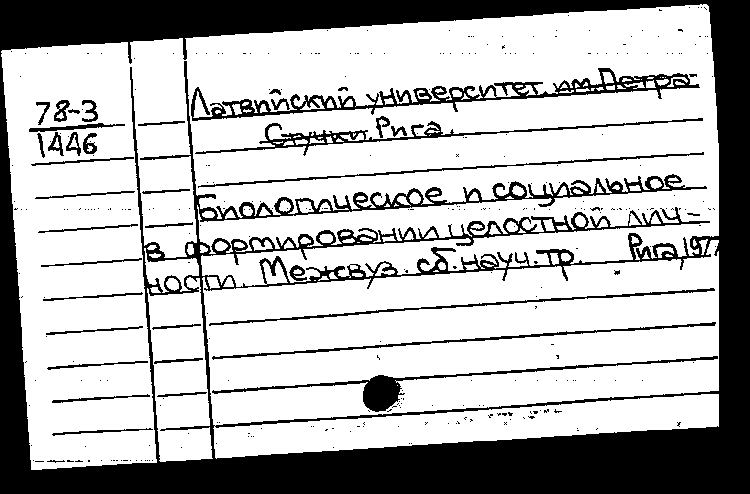 78-3
1446
Латвийский университет им. Петра
Стучки. Рига.
Биологическое и социальное
в формировании целостной лич-
ности. Межвуз. сб. науч. тр. Рига, 1977